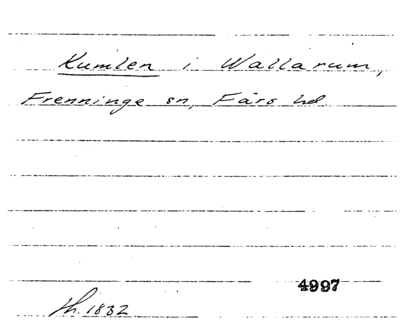 Kumlen i Wallarum,
Frenninge sn, Färs hd
4997
h. 1832